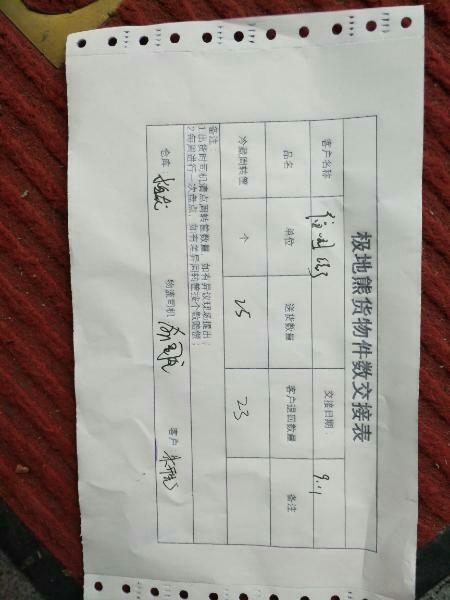 极地熊货物件数交接表
客户名称 交接日期： 9.11
品名 单位 送货数量 客户退回数量 备注
冷藏周转筐 个 25 23
备注：
1.出货时司机清点周转筐数量，如有异议现场提出；
2.每周进行一次盘点，如有差异周转筐按个数赔偿；
仓库 物流司机 客户